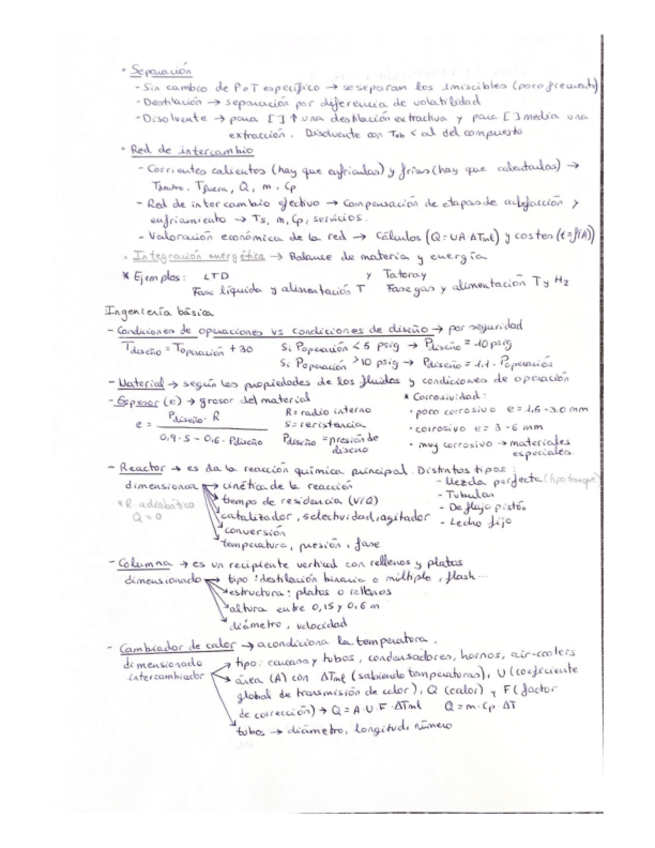 · Separación
- Sin cambio de P o T específico → se separan los inmiscibles (poco frecuente)
- Destilación → separación por diferencia de volatilidad
- Disolvente → para [ ] ↑ una destilación extractiva y para [ ] media una
extracción. Disolvente con Teb < al del compuesto
· Red de intercambio
- Corrientes calientes (hay que enfriarlas) y frías (hay que calentarlas) →
Tdentro, Tfuera, Q, m, Cp
- Red de intercambio efectivo → Compensación de etapas de calefacción y
enfriamiento → Ts, m, Cp, servicios.
- Valoración económica de la red → Cálculos (Q=UA·ΔTml) y costes (€=f(A))
· Integración energética → Balance de materia y energía
* Ejemplos: LTD y Tatoray
Fase líquida y alimentación T Fase gas y alimentación T y H2
Ingeniería básica
- Condiciones de operaciones vs condiciones de diseño → por seguridad
Tdiseño = Toperación + 30 Si Poperación < 5 psig → Pdiseño = 10 psig
Si Poperación > 10 psig → Pdiseño = 1.1 · Poperación
- Material → según las propiedades de los fluidos y condiciones de operación
- Espesor (e) → grosor del material * Corrosividad:
e = Pdiseño · R / 0,9·S - 0,6·Pdiseño R = radio interno · poco corrosivo e = 1,5-3.0 mm
S = resistencia · corrosivo e = 3-6 mm
Pdiseño = presión de diseño · muy corrosivo → materiales especiales.
- Reactor → es da la reacción química principal. Distintos tipos:
dimensionar → cinética de la reacción - Mezcla perfecta (tipo tanque)
* R. adiabático → tiempo de residencia (V/Q) - Tubular
Q = 0 → catalizador, selectividad, agitador - De flujo pistón
→ conversión - Lecho fijo
→ temperatura, presión, fase
- Columna → es un recipiente vertical con rellenos y platos
dimensionado → tipo: destilación binaria o múltiple, flash...
→ estructura: platos o rellenos
→ altura entre 0,15 y 0,6 m
→ diámetro, velocidad
- Cambiador de calor → acondiciona la temperatura.
dimensionado → tipo: carcasa y tubos, condensadores, hornos, air-coolers
intercambiador → área (A) con ΔTml (sabiendo temperaturas), U (coeficiente
global de transmisión de calor), Q (calor) y F (factor
de corrección) → Q = A·U·F·ΔTml Q = m·Cp·ΔT
→ tubos → diámetro, longitud, número